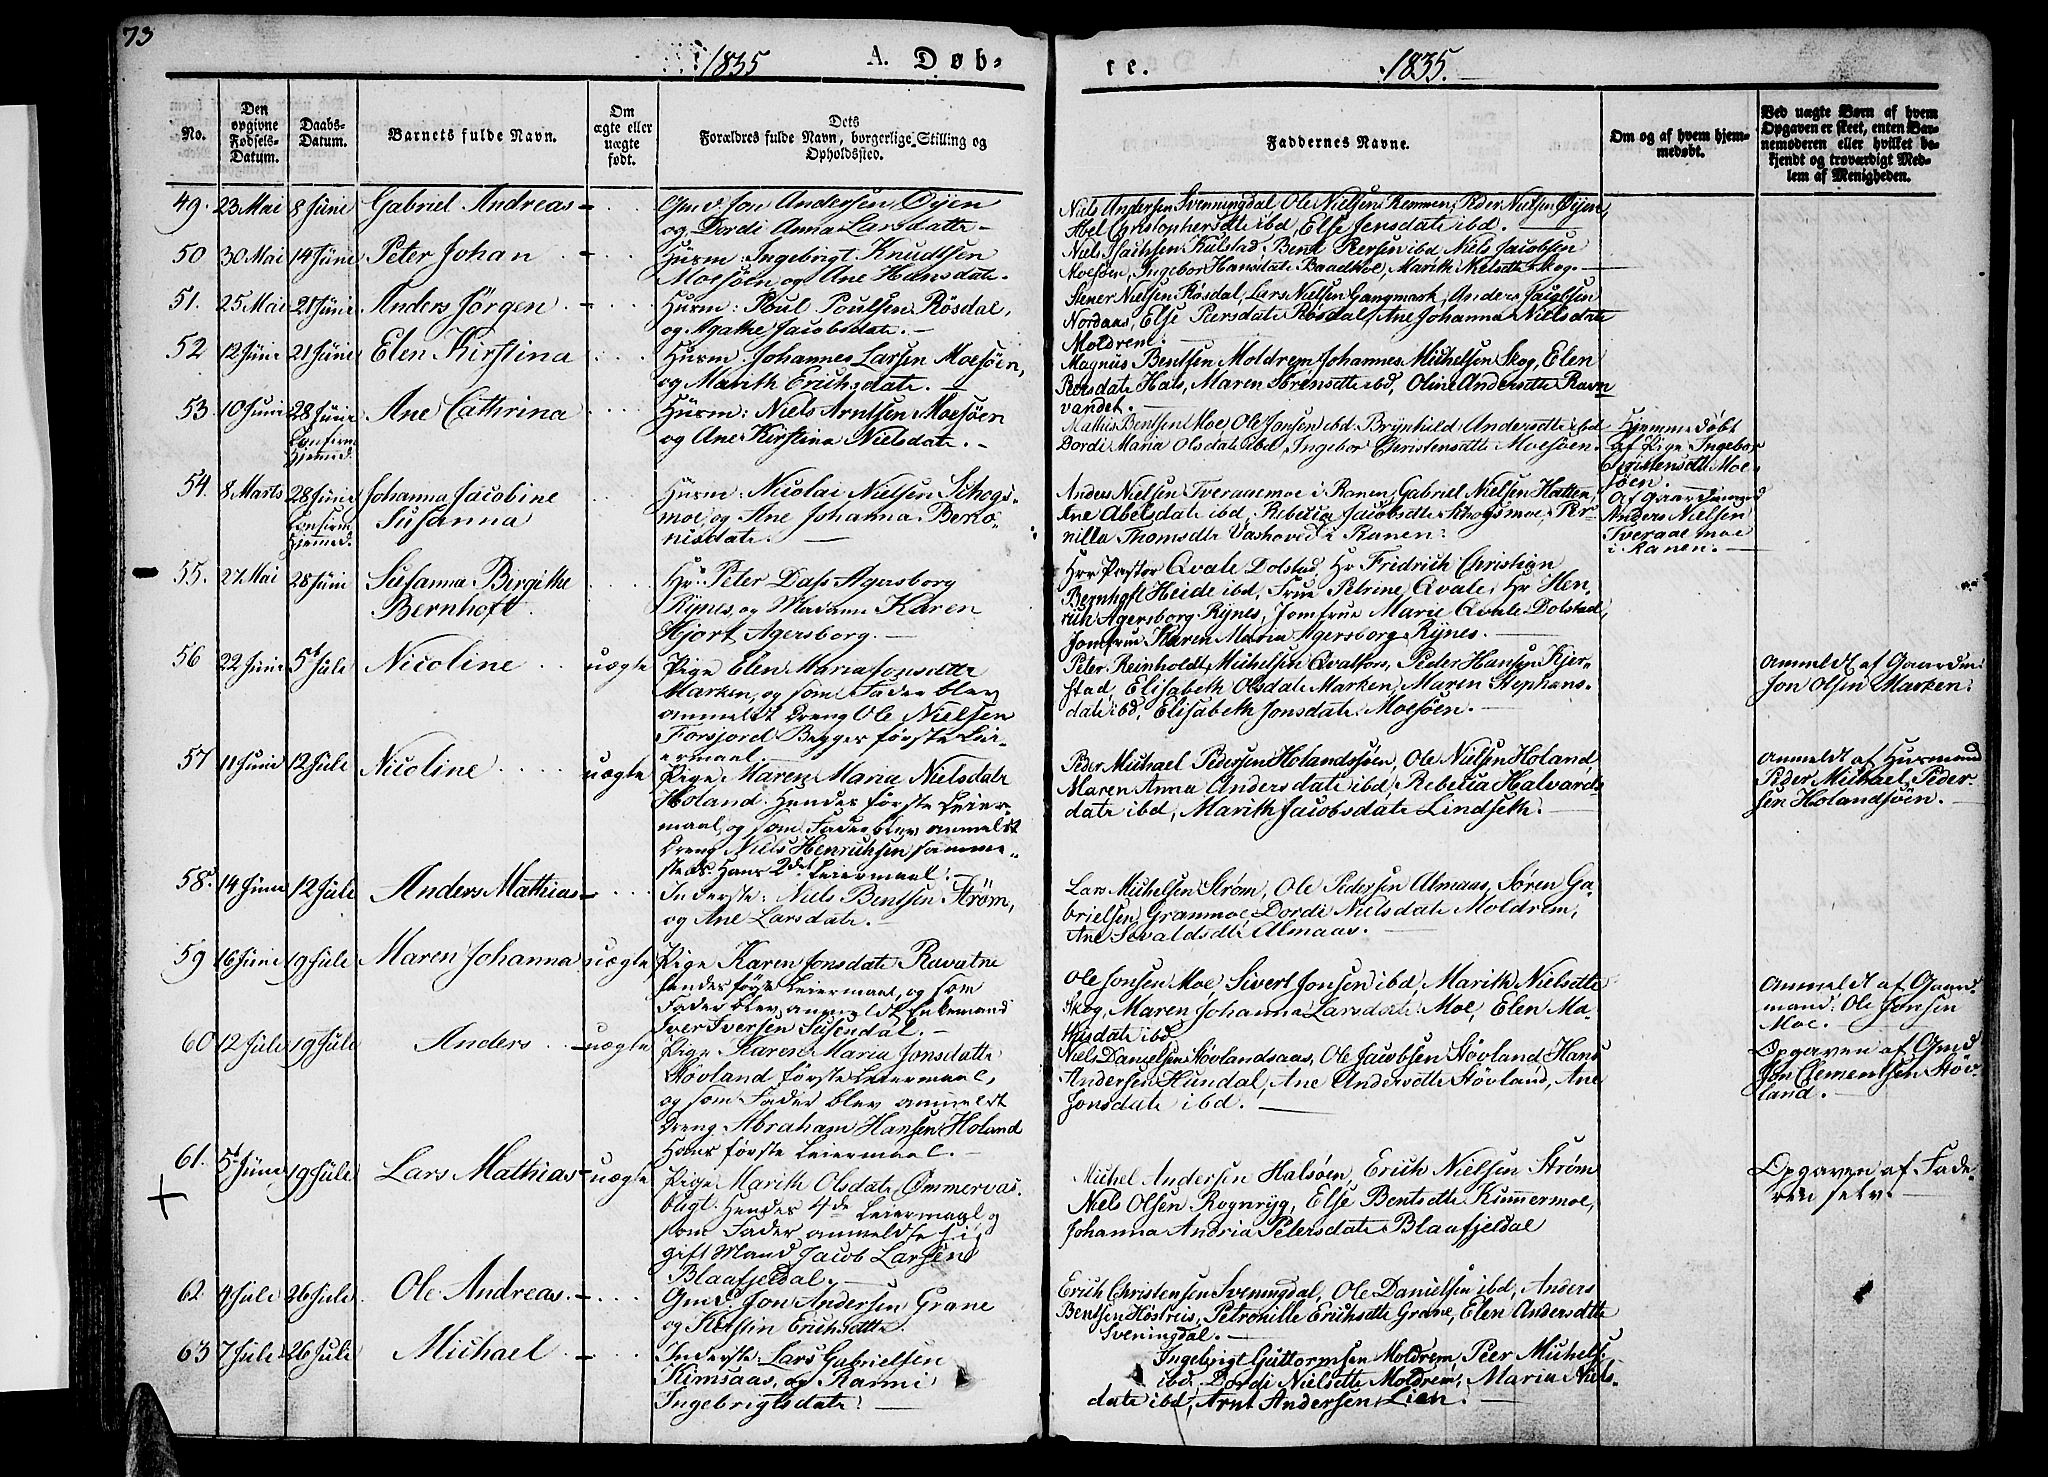 73
1835
A. Døb-
te.
1835.
No.
Den opgivne Fødsels-Datum.
Daabs-Datum.
Barnets fulde Navn.
Om ægte eller uægte født.
Dets
Forældres fulde Navn, borgerlige Stilling og
Opholdssted.
Faddernes Navne.
Om og af hvem hjem-
medøbt.
Ved uægte Børn af hvem
Opgaven er skeet, enten Bar-
nemoderen eller hvilket be-
kjendt og troværdigt Med-
lem af Menigheden.
49. 23 Mai 8 Juni Gabriel Andreas
Gmd. Jon Andersen Øyen
og Dordi Anna Larsdatte
Niels Andersen Svenningdal, Ole Nielsen Remmen, Peder Nielsen Øyen,
Abel Christophersdte ibd, Else Jensdate ibd.
50 30 Mai 14 Juni Peter Johan
Husm: Ingebrigt Knudtsen
Moesøen og Ane Hansdate.
Niels Kulstad Bent Persen ibd, Niels Jacobsen
Moesøen, Ingebor Hansdate Baadmoe, Marith Nielsdte Skog.
51. 25 Mai 21 Juni Anders Jörgen
Husm: Poul Poulsen Rösdal,
og Agathe Jacobsdate.
Stener Nielsen Røsdal, Lars Nielsen Gangmark, Anders Jacobsen
Nordaas, Else Peersdate Røsdal, Ane Johanna Nielsdate
Moldrem.
52 12 Juni 21 Juni Elen Kirstina
Husm. Johannes Larsen Moesøen,
og Marith Erichsdate.
Magnus Bentsen Moldrem, Johannes Michelsen Skog, Elen
Persdate Hals, Maren Sörensdte ibd, Oline Andersdte Ravn
vandet.
53 10 Juni 28 Juni Confirm. Hjemmed. Ane Cathrina
Husm: Niels Arntsen Moesøen
og Ane Kirstina Nielsdate.
Mathis Bentsen Moe, Ole Jonsen ibd. Brynhild Andersdte ibd
Dordi Maria Olsdate ibd, Ingebor Christensdte Moesøen.
Hjemmedøbt
af Pige Ingebor
Christensdte Moe-
søen.
54. 8 Marts 28 Juni Confirm. Hjemmed. Johanna Jacobine
Susanna
Husm: Nicolai Nielsen Schogs-
moe, og Ane Johanna Bero-
nisdate.
Anders Nielsen Tveraaemoe i Ranen, Gabriel Nielsen Hatten,
Ane Abelsdate ibd. Rebecca Jacobsdte Schogsmoe, Per-
nilla Thomsdte i Ranen.
Af Gaardmand
Anders Nielsen
Tveraaemoe
i Ranen.
55. 27 Mai 28 Juni Susanna Birgithe
Bernhoft.
Hr. Peter Dass Agersborg
Rynes, og Madame Karen
Hjort Agersborg.
Hrr Pastor Qvale Dolstad, Hr Fridrich Christian
Bernhoft Heide ibd, Frue Petrine Qvale, Hr Hen-
rich Agersborg Rynes, Jomfrue Marie Qvale Dolstad,
Jomfrue Karen Maria Agersborg Rynes.
56 22 Juni 5t Juli Nicoline uægte
Pige Elen Maria Jonsdatte
Marken, og som Fader blev
anmeldt Dreng Ole Nielsen
Forsjord Begges første Lei-
ermaal.
Peter Reinholdt Michelsen Qvalfors, Peder Hansen Kjer-
stad, Elisabeth Olsdate Marken, Maren Stephans-
date ibd, Elisabeth Jonsdate Moesøen.
Anmeldt af Gaardm:
Jon Olsen Marken.
57 11 Juni 12 Juli Nicoline uægte
Pige Maren Maria Nielsdate
Holand. Hendes første Leier-
maal, og som Fader blev anmeldt
Dreng Niels Henrichsen samme-
steds. Hans 2det Leiermaal.
Peder Michael Pedersen Holandsøen, Ole Nielsen Holand
Maren Anna Andersdate ibd, Rebecca Halvards-
date ibd, Marith Jacobsdate Lindseth.
Anmeldt af Husmand
Peder Michael Peder-
sen Holandsøen.
58. 14 Juni 12 Juli Anders Mathias
Inderste: Niels Bentsen Strøm,
og Ane Larsdate.
Lars Michelsen Strøm, Ole Pedersen Almaas, Søren Ga-
brielsen Granmoe, Dordi Nielsdate Moldrem,
Ane Sevaldsdte Almaas.
59 16 Juni 19 Juli Maren Johanna uægte
Pige Karen Jonsdate Ravatne
hendes første Leiermaal, og som
Fader blev anmeldt Enkemand
Iver Iversen Susendal.
Ole Jonsen Moe, Sivert Jonsen ibd, Marith Nielsdte
Skog, Maren Johanna Larsdate Moe, Elen Ma-
thisdate ibd.
Anmeldt af Gaard-
mand: Ole Jonsen
Moe.
60 12 Juli 19 Juli Anders uægte
Pige Karen Maria Jonsdatte
Støvland første Leiermaal,
og som Fader blev anmeldt
Dreng Abraham Hansen Holand
Hans første Leiermaal.
Niels Danielsen Støvlandsaas, Ole Jacobsen Støvland, Hans
Andersen Hundal, Ane Andersdtte Støvland, Ane
Jonsdate ibd.
Opgaven af Gmd
Jon Clementsen Støv-
land.
61. 5t Juni 19 Juli Lars Mathias uægte
Pige Marith Olsdate Ømmervas-
bugt. Hendes 4de Leiermaal og
som Fader anmeldte sig
gift Mand Jacob Larsen
Blaafjeldal.
Michel Andersen Halsøen, Erich Nielsen Strøm
Niels Olsen Rognryg, Else Bentsdte Kummermoe,
Johanna Andria Petersdate Blaafjeldal
Opgaven af Fade-
ren selv.
62. 4 Juli 26 Juli Ole Andreas.
Gmd. Jon Andersen Grane
og Kerstin Erichsdtte.
Erich Christensen Sveningdal, Ole Danielsen ibd, Anders
Bentsen Høstreis, Petronille Erichsdte Grane, Elen Andersdtte
Sveningdal.
63 7 Juli 26 Juli Michael
Inderste Lars Gabrielsen
Kimsaas, og Ranni
Ingebrigtsdate.
Ingebrigt Guttormsen Moldrem, Peer Michels:
ibd. Dordi Nielsdte Moldrem, Maria Niels-
date ibd, Arnt Andersen Lien.